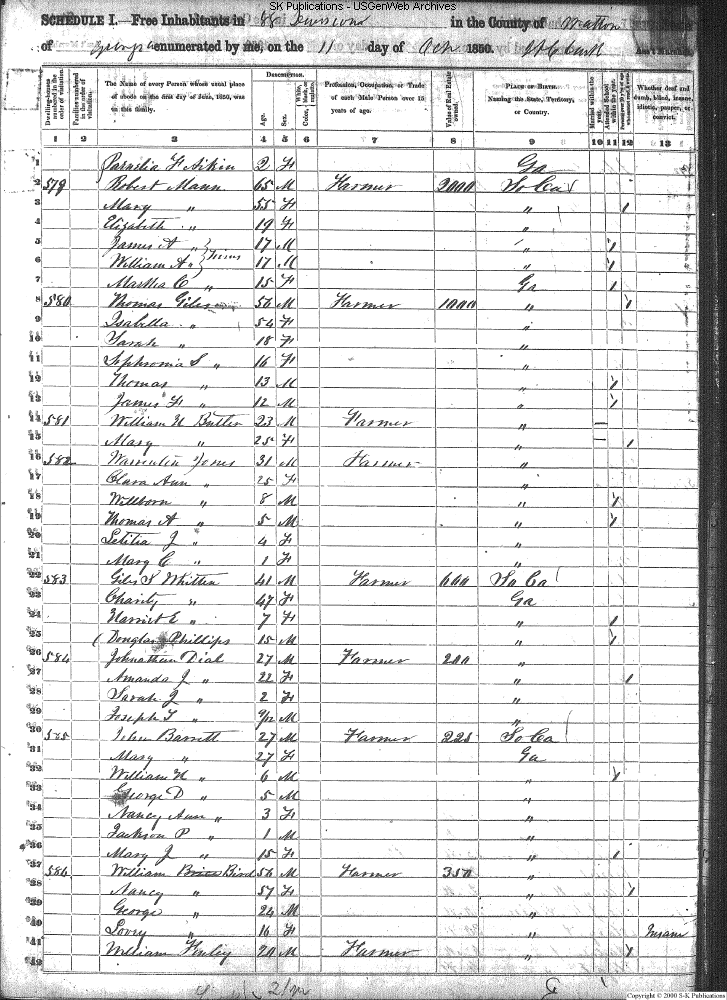 SK Publications - USGenWeb Archives
SCHEDULE I.—Free Inhabitants in 88 Division in the County of Walton
of Georgia enumerated by me, on the 11 day of Oct 1850.
Dwelling-houses numbered in the order of visitation.
Families numbered in the order of visitation.
The Name of every Person whose usual place of abode on the first day of June, 1850, was in this family.
DESCRIPTION.
Age.
Sex.
Color, White, black, or mulatto.
Profession, Occupation, or Trade of each Male Person over 15 years of age.
Value of Real Estate owned.
PLACE OF BIRTH. Naming the State, Territory, or Country.
Married within the year.
Attended School within the year.
Whether deaf and dumb, blind, insane, idiotic, pauper, or convict.
1 2 3 4 5 6 7 8 9 10 11 12 13
1 Parmelia F Aikin 2 F Ga
2 579 Robert Mann 65 M Farmer 2000 So Ca
3 Mary " 55 F " /
4 Elizabeth " 19 F "
5 James A " 17 M " /
6 William A " } Twins 17 M " /
7 Martha C " 15 F Ga /
8 580 Thomas Giles 56 M Farmer 1000 " /
9 Isabella " 54 F "
10 Sarah " 18 F "
11 Sophronia S " 16 F "
12 Thomas " 13 M " /
13 James F " 12 M " /
14 581 William H Butler 23 M Farmer " —
15 Mary " 25 F " — /
16 582 Jones 31 M Farmer "
17 Clara Ann " 25 F "
18 Willborn " 8 M " /
19 Thomas A " 5 M " /
20 Letitia J " 4 F "
21 Mary C " 1 F "
22 583 Giles S Whitten 41 M Farmer 600 So Ca
23 Charity " 47 F Ga
24 Harriet E " 7 F " /
25 Douglas Phillips 15 M " /
26 584 Johnathan Dial 27 M Farmer 200 "
27 Amanda J " 22 F " /
28 Sarah J " 2 F "
29 Joseph T " 9/12 M "
30 585 John Barrett 27 M Farmer 225 So Ca
31 Mary " 27 F Ga
32 William H " 6 M " /
33 George D " 5 M "
34 Nancy Ann " 3 F "
35 Jackson P " 1 M "
36 Mary J " 15 F " /
37 586 William Bird 56 M Farmer 350 "
38 Nancy " 57 F " /
39 George " 24 M "
40 Lovey " 16 F " Insane
41 William Finley 20 M Farmer " /
42
Copyright © 2000 S-K Publications